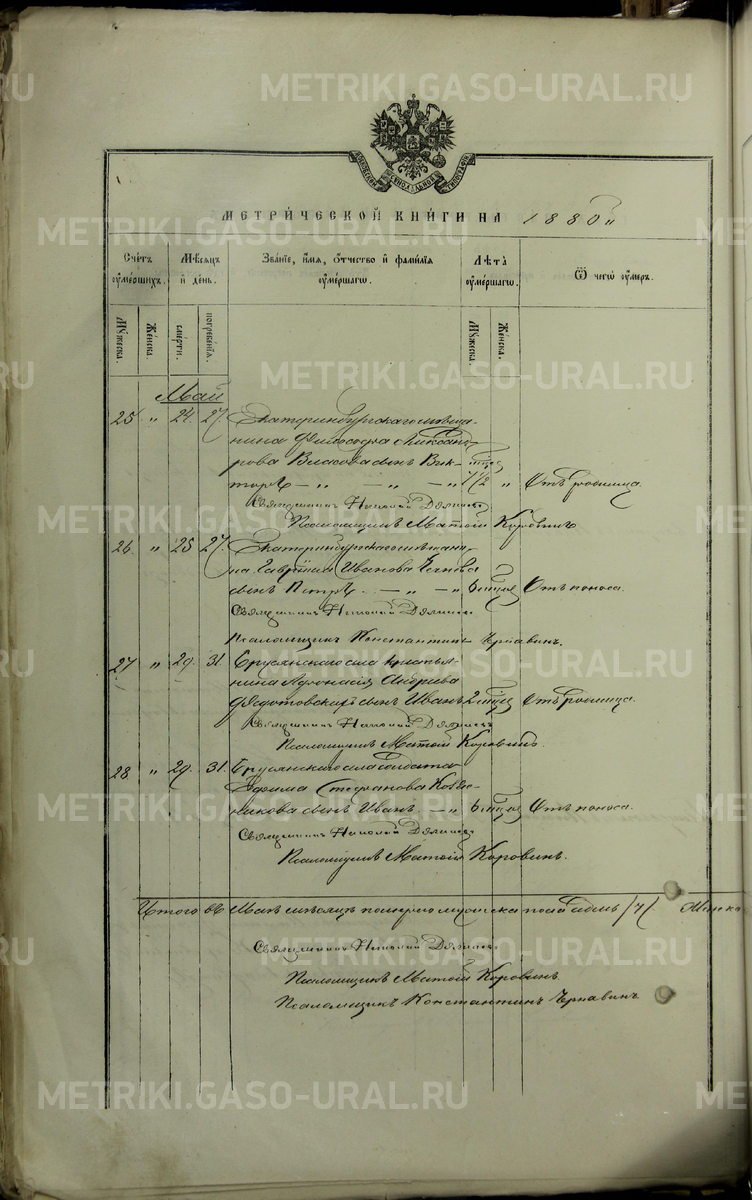 METRIKI.GASO-URAL.RU
МЕТРИ́ЧЕСКОЙ КНИ́ГИ НА 1880 "
Сче́тъ оу҆ме́ршихъ.
Мѣ́сяцъ и҆ де́нь.
Зва́нїе, и҆́мя, ѻ҆́тчество и҆ фами́лїя оу҆ме́ршагѡ.
Лѣ́та оу҆ме́ршагѡ.
Ѿ чегѡ̀ оу҆́меръ.
Мꙋ́жеска.
Же́нска.
сме́рти.
погребе́нїя.
Мꙋ́жеска.
Же́нска.
Май
25 " 24. 27. Екатеринбургскаго мѣща-
нина Философа Александ-
рова сынъ Вик-
торъ — " — " — " 1/2 " Отъ родимца.
Священникъ Николай
Псаломщикъ Матѳій Коровинъ
26. " 25 27. Екатеринбургскаго мѣщани-
на Гавріила Иванова
сынъ Петръ. — " — " 6 мѣсяц Отъ поноса.
Священникъ Николай
Псаломщикъ Константинъ Чернавинъ.
27 " 29. 31. Брусянскаго села крестья-
нина Аѳонасія Андреева
Федотовскихъ сынъ Иванъ 2 мѣсяц Отъ родимца.
Священникъ Николай
Псаломщикъ Матѳій Коровинъ.
28 " 29. 31. Брусянскаго села солдата
Ефима Стефанова Кожев-
никова сынъ Иванъ. — " 6 мѣсяц Отъ поноса.
Священникъ Николай
Псаломщикъ Матѳій Коровинъ.
Итого въ Маѣ мѣсяцѣ померло мужеска пола семь /7/ женска
Священникъ Николай
Псаломщикъ Матѳій Коровинъ
Псаломщикъ Константинъ Чернавинъ